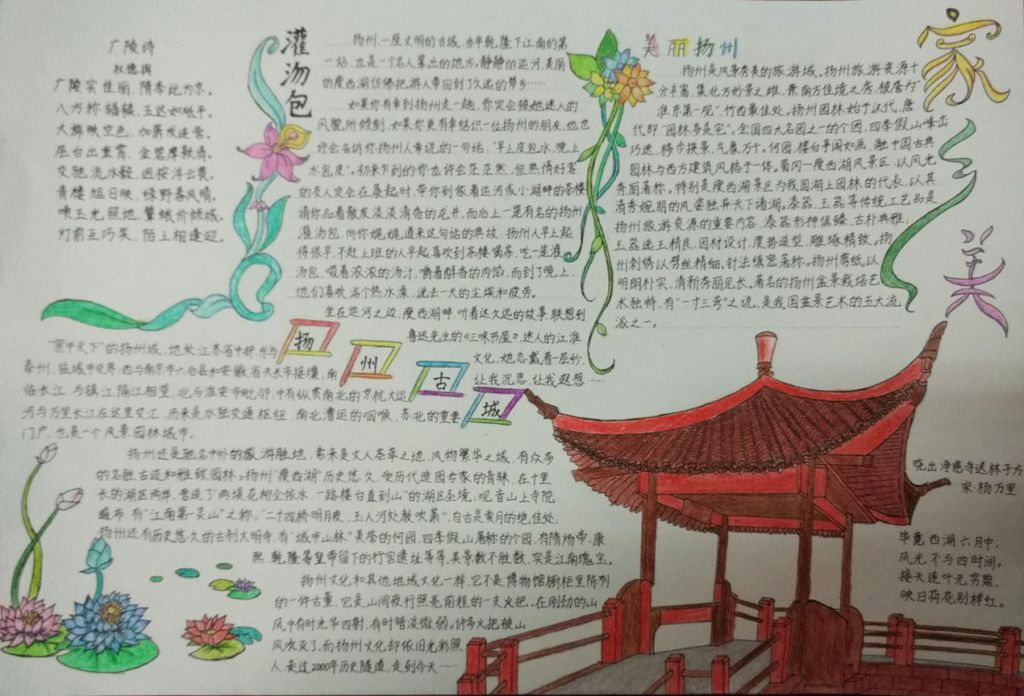 广陵诗
权德舆
广陵实佳丽，隋季此为京。
八方称辐辏，五达如砥平。
大旆映空色，笳箫发连营。
层台出重霄，金碧摩颢清。
交驰流水毂，迥接浮云甍。
青楼旭日映，绿野春风晴。
喷玉光照地，颦蛾价倾城。
灯前互巧笑，陌上相逢迎。
灌汤包
扬州，一座文明的古城，当年乾隆下江南的第
一站，也是一个名人辈出的地方。静静的运河，美丽
的瘦西湖仿佛把游人带回到了久远的梦乡……
如果你有幸到扬州走一趟，你定会被她迷人的
风貌所倾倒，如果你更有幸结识一位扬州的朋友，他也
许会告诉你扬州人常说的一句话，"早上皮包水，晚上
水包皮"，初来乍到的你也许会茫茫然，但热情好客
的友人定会在晨起时，带你到依着运河或小湖畔的茶楼
请你品着散发淡淡清香的花卉，而后上一笼有名的扬州
灌汤包，向你娓娓道来这句话的典故，扬州人早上起
得很早，不赶上班的人早起喜欢到茶楼喝茶，吃一笼灌
汤包，吸着浓浓的汤汁，嚼着鲜香的肉馅，而到了晚上，
他们喜欢泡个热水澡，洗去一天的尘埃和疲劳。
坐在运河之边，瘦西湖畔，听着这久远的故事，联想到
鲁迅先生的《三味书屋》，迷人的江淮
文化，她总戴着一层纱，
让我沉思，让我遐想……
美丽扬州
扬州是风景秀美的旅游城。扬州旅游资源十
分丰富，集北方妙景之雄，兼南方佳境之秀，被誉为"
淮东第一观"，竹西最佳处。扬州园林始于汉代，唐
代即"园林多是宅"。全国四大名园之一的个园，四季假山峰峦
巧迭，移步换景，气象万千。何园，楼台亭阁如画，融中国古典
园林与西方建筑风格于一体。蜀冈—瘦西湖风景区，以风光
秀丽著称。特别是瘦西湖景区为我国湖上园林的代表，以其
清秀婉丽的风姿独异天下诸湖。漆器、玉器等传统工艺品是
扬州旅游资源的重要内容，漆器形神俱臻，古朴典雅；
玉器选玉精良，因材设计，度势造型，雕琢精致。扬
州刺绣以劈丝精细，针法缜密著称。扬州剪纸以
明朗朴实，清新秀丽见长。著名的扬州盆景栽培艺
术独特，有"一寸三弯"之说，是我国盆景艺术的五大流
派之一。
家
美
扬州古城
"富甲天下"的扬州城，地处江苏省中部，东与
泰州，盐城市交界，西与南京市六合县和安徽省天长市接壤，南
临长江，与镇江隔江相望，北与淮安市毗邻，中有纵贯南北的京杭大运
河与万里长江在这里交汇，历来是水陆交通枢纽，南北漕运的咽喉，苏北的重要
门户，也是一个风景园林城市。
扬州还是驰名中外的旅游胜地，素来是文人荟萃之地，风物繁华之城，有众多
的名胜古迹和雅致园林。扬州"瘦西湖"历史悠久，受历代造园专家的青睐，在十里
长的湖区两岸，营造了"两堤花柳全依水，一路楼台直到山"的湖区圣境，观音山上寺院
遍布有"江南第一灵山"之称。"二十四桥明月夜，玉人何处教吹箫"，自古是赏月的绝佳处。
扬州还有历史悠久的古刹大明寺，有"城中山林"美誉的何园，四季假山著称的个园，有隋炀帝、康
熙、乾隆等皇帝留下的行宫遗址等等，美景数不胜数，实是江南瑰宝。
扬州文化和其他地域文化一样，它不是博物馆橱柜里陈列
的一件古董，它是山间夜行照亮前程的一支火把，在刚劲的山
风中有时光华四射，有时暗淡微弱。许多火把被山
风吹灭了，而扬州文化却依旧光彩照
人，走过2000年历史隧道，走到今天……
晓出净慈寺送林子方
宋·杨万里
毕竟西湖六月中，
风光不与四时同。
接天莲叶无穷碧，
映日荷花别样红。